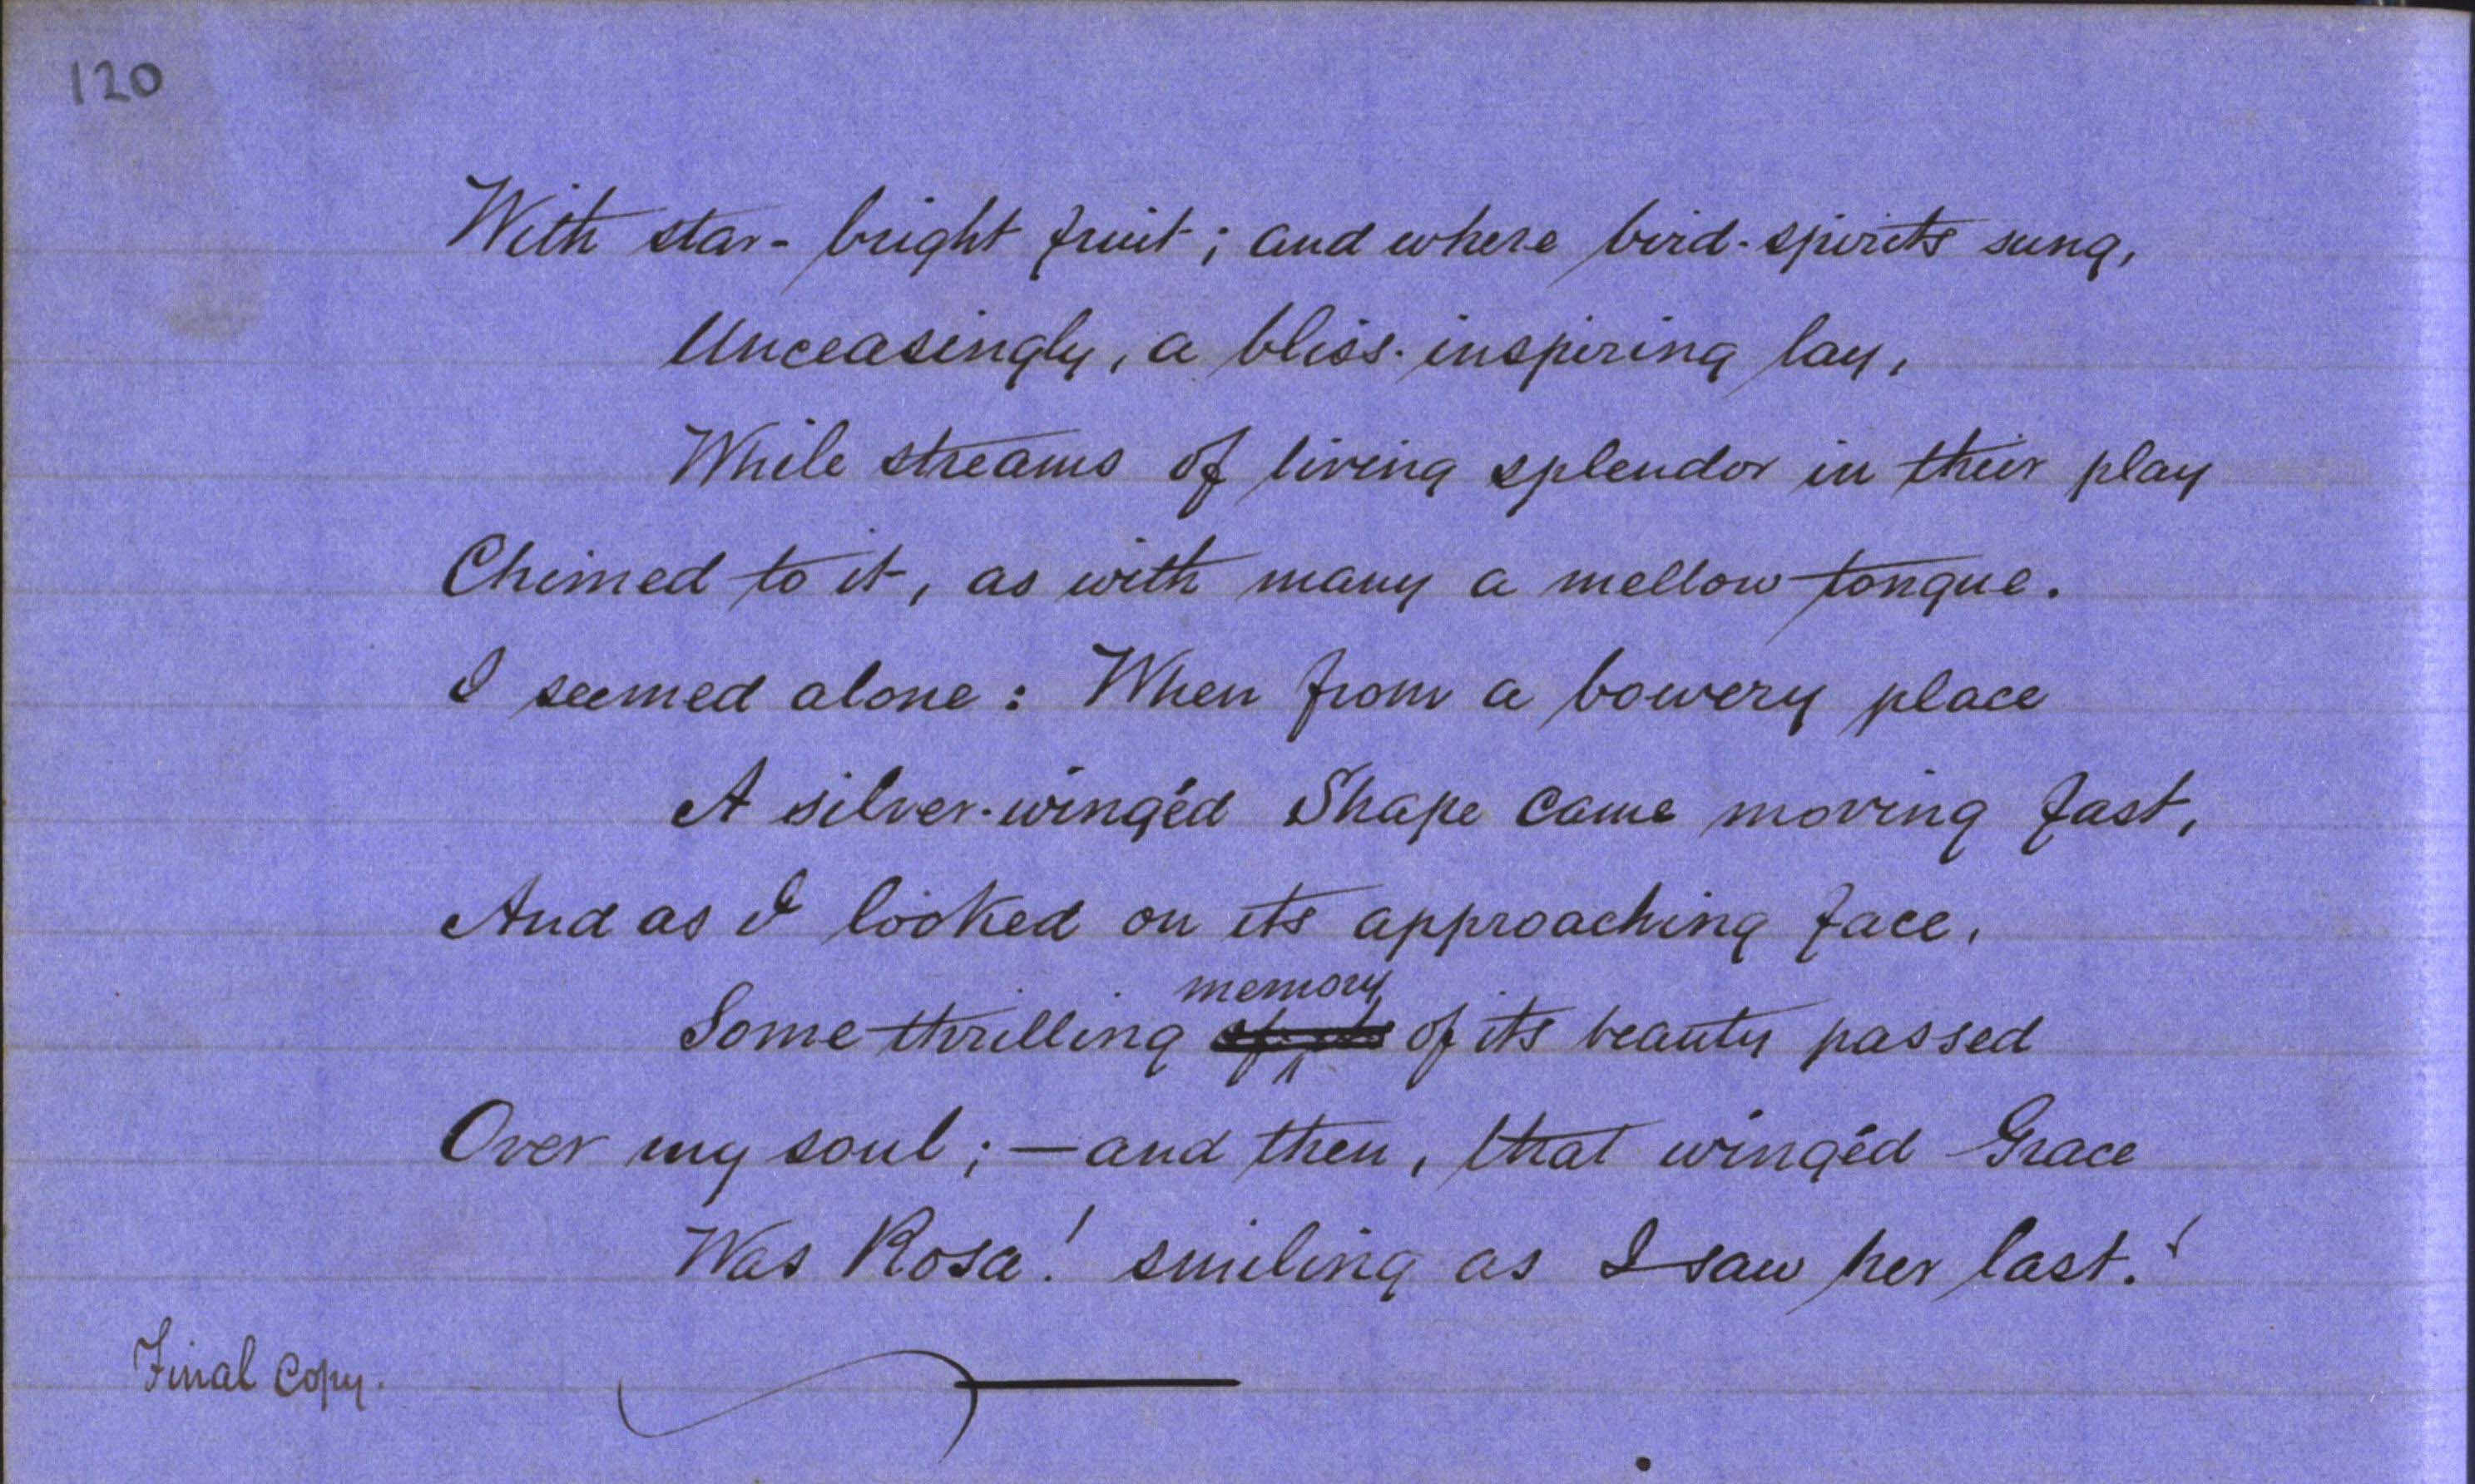 120
With star-bright fruit; and where bird-spirits sung,
Unceasingly, a bliss-inspiring lay,
While streams of living splendor in their play
Chimed to it, as with many a mellow tongue.
I seemed alone: When from a bowery place
A silver-wingéd Shape came moving fast,
And as I looked on its approaching face,
memory
Some thrilling of its beauty passed
Over my soul; — and then, that wingéd Grace
Was Rosa! smiling as I saw her last!
Final Copy.